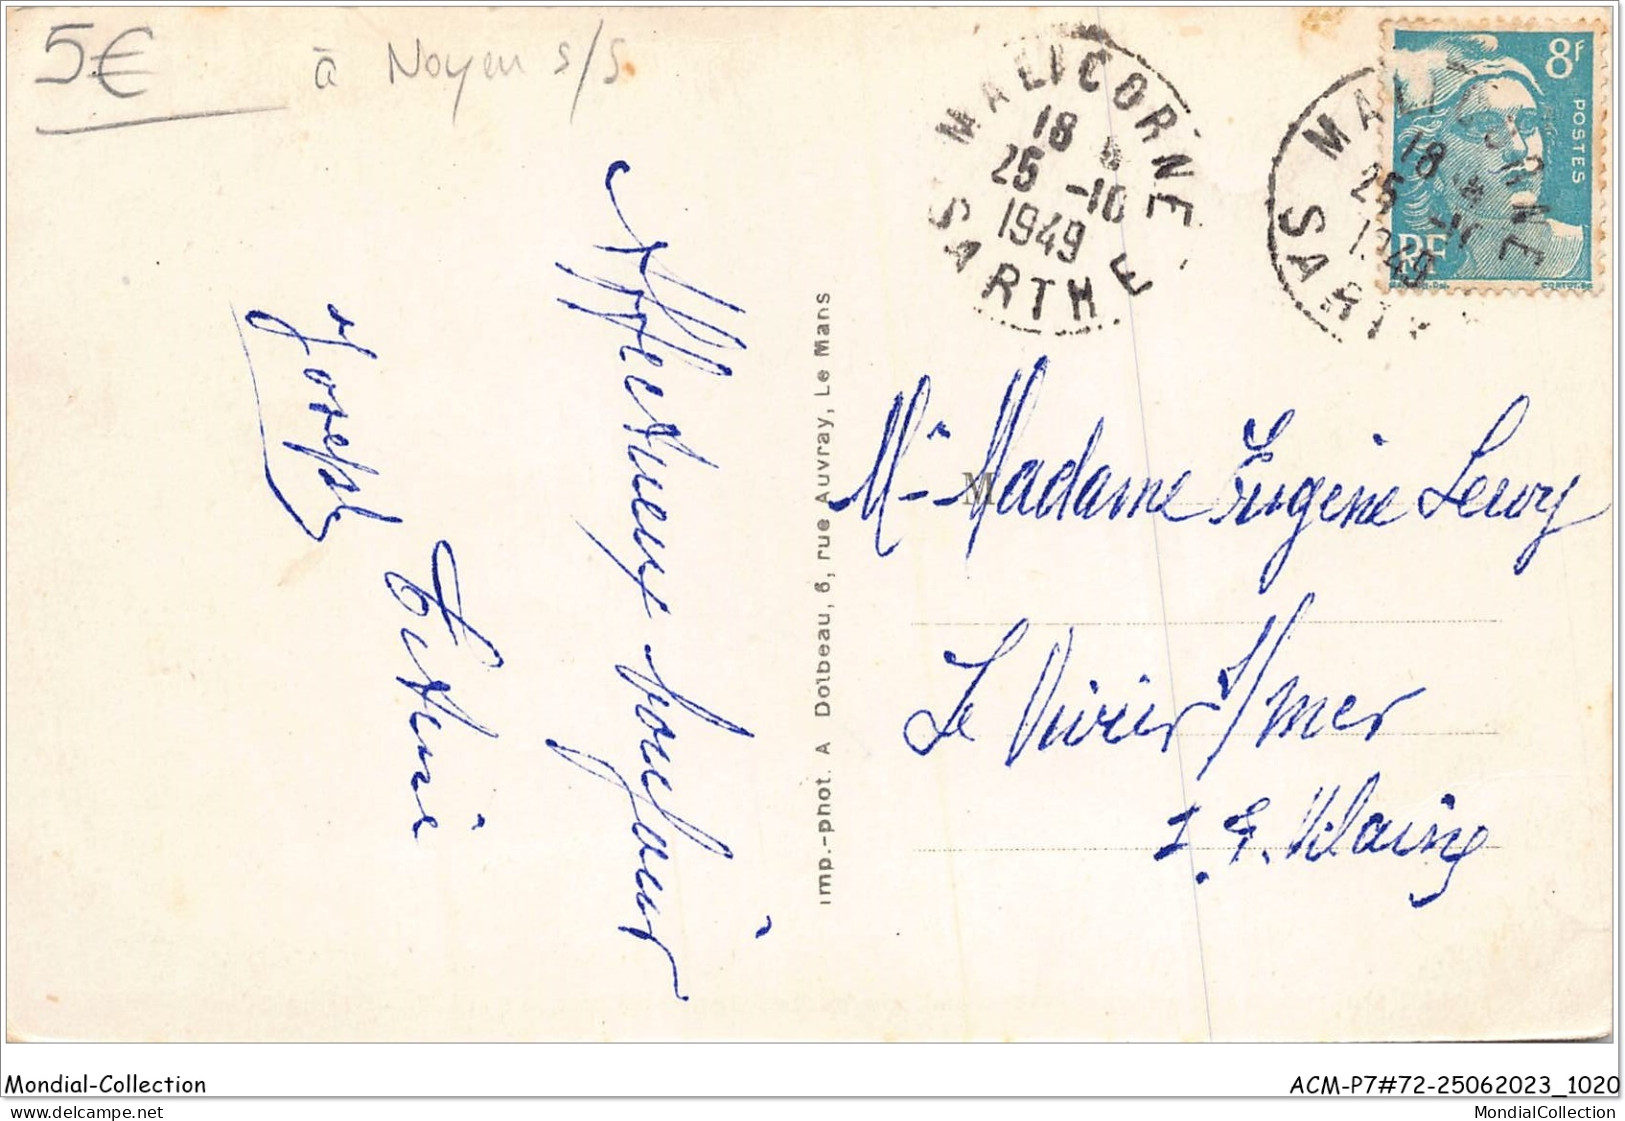 5€
à Noyen s/S
MALICORNE
18
25 -10
1949
SARTHE
MALICORNE
18
25
1949
SART
8F
POSTES
RF
CORTOT
Affectueux bonjour
Joseph
imp.-phot. A Dolbeau, 6, rue Auvray, Le Mans
M
Mr Madame Eugène Leroy
Le Vivier s/mer
I. & Vilaine
Mondial-Collection
ACM-P7#72-25062023_1020
MondialCollection.com
MondialCollection